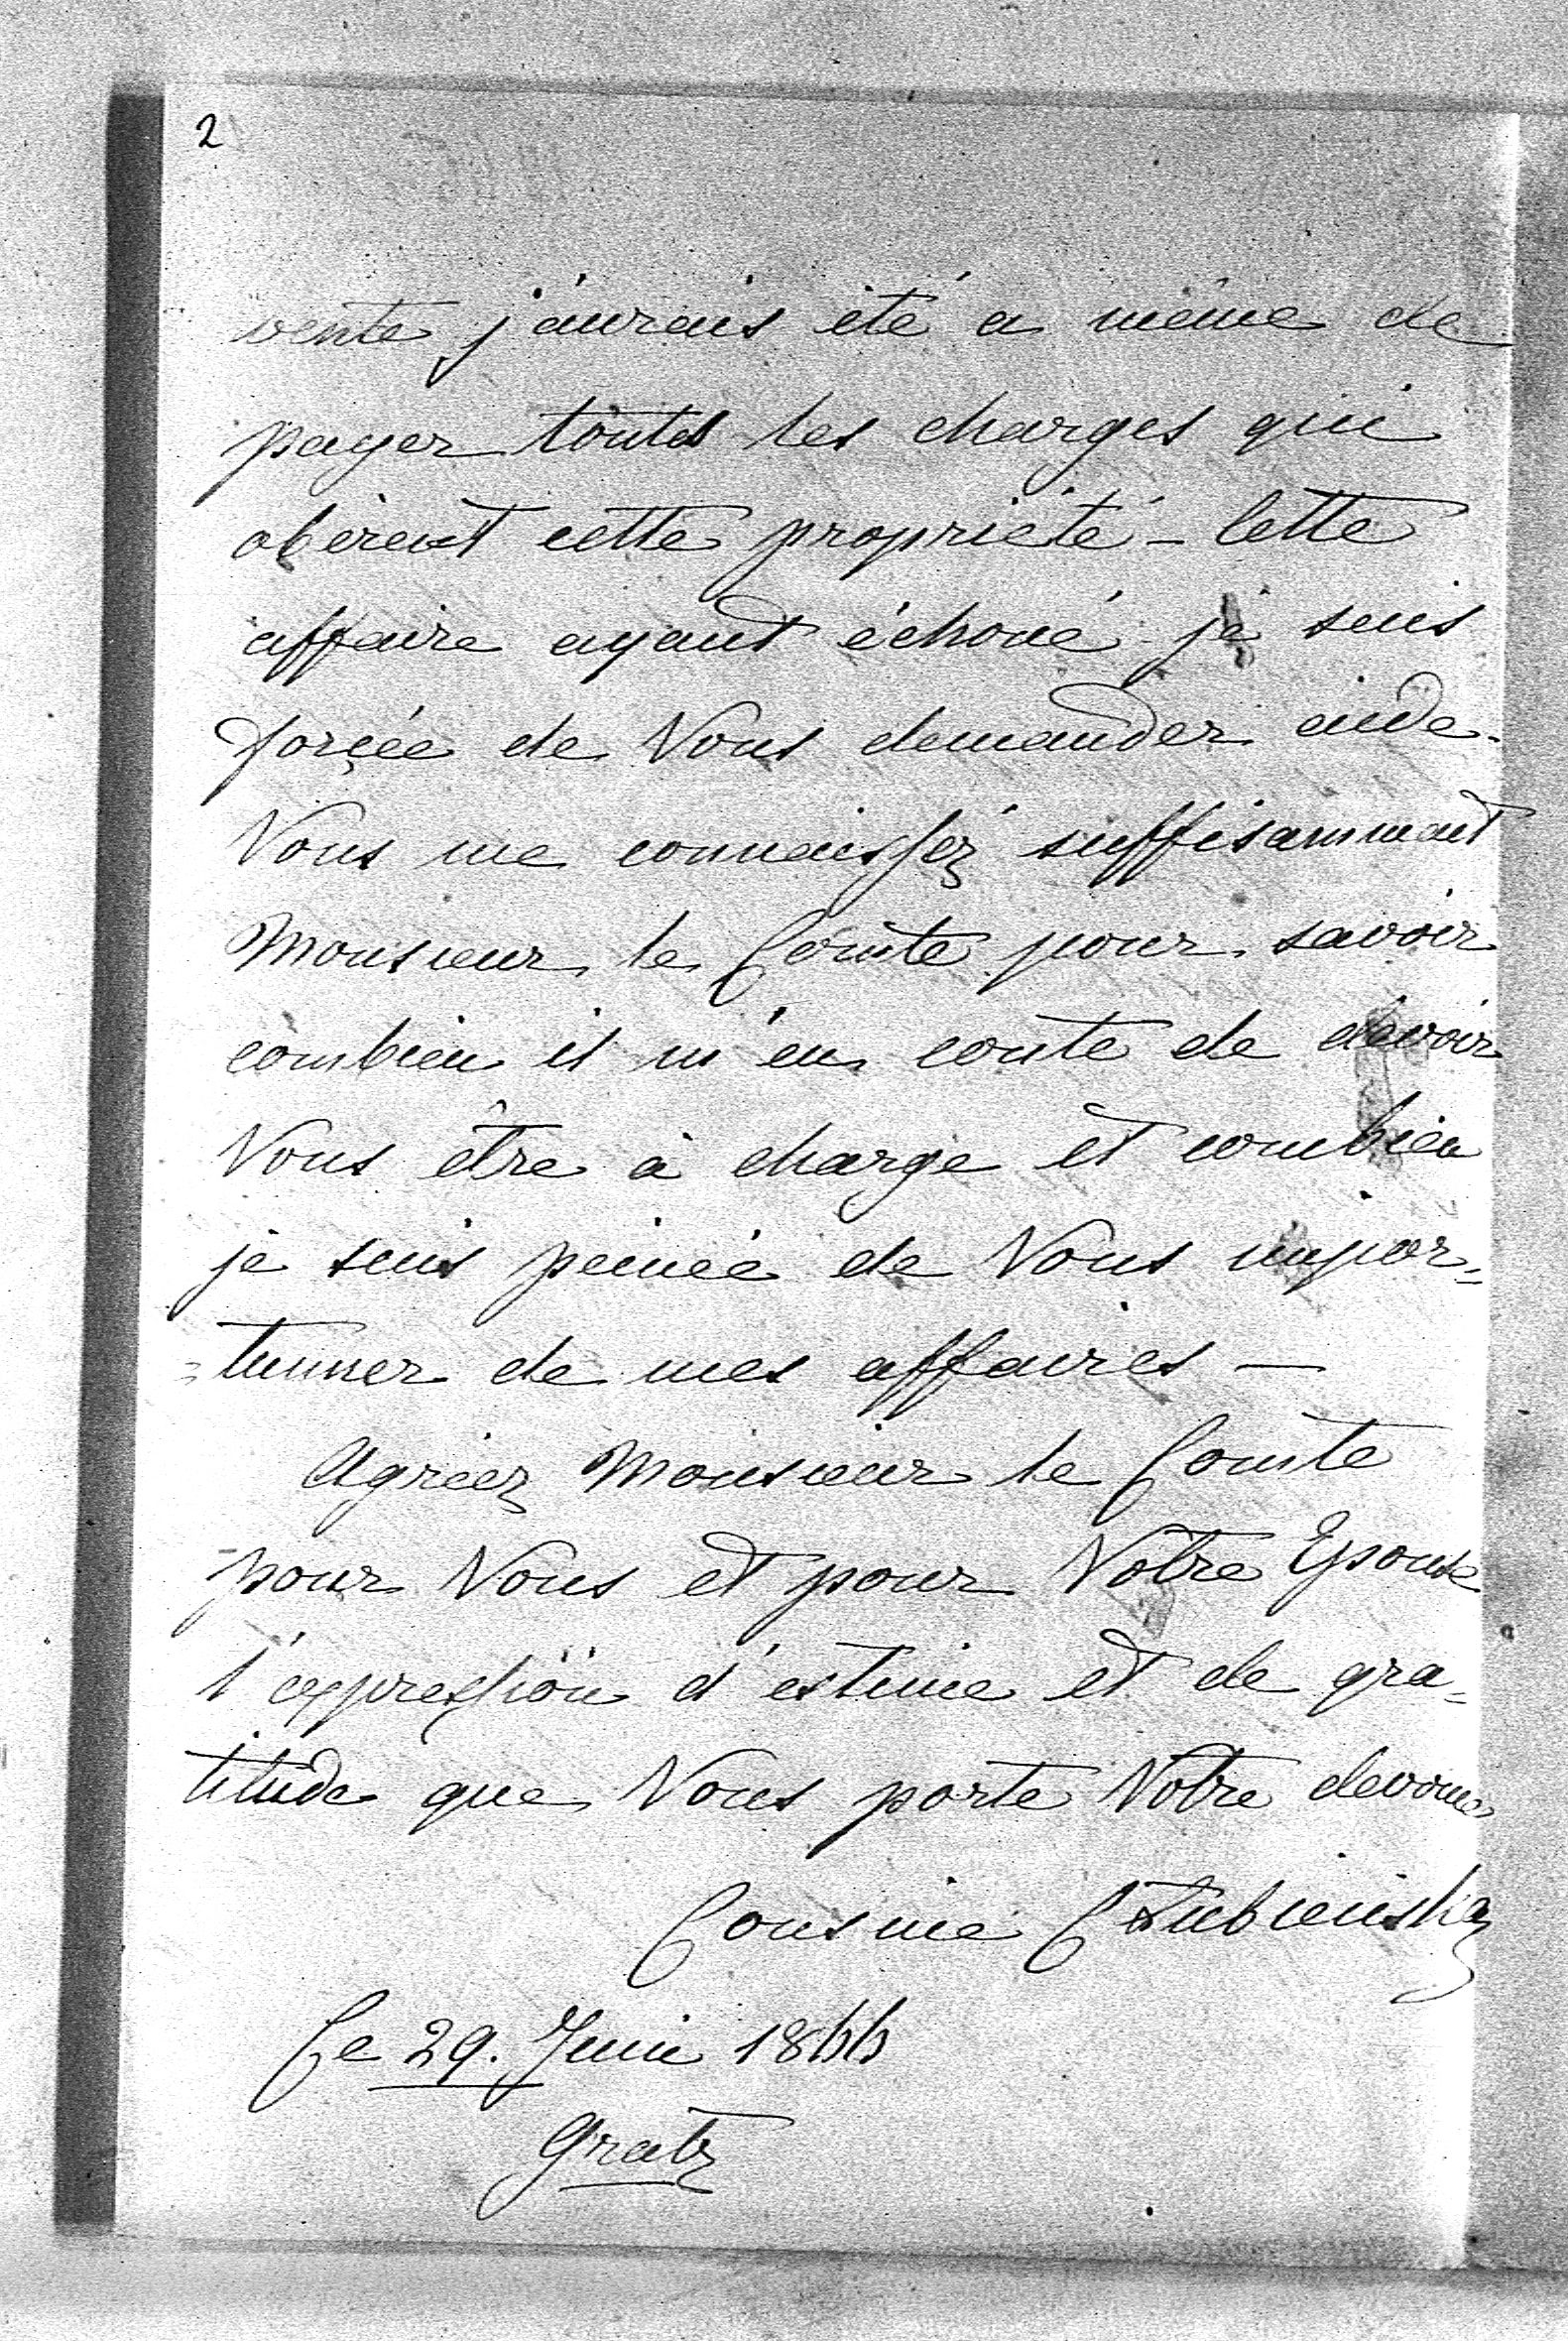 2
vente j'aurais été a même de
payer toutes les charges qui
obèrent cette propriété – Cette
affaire ayant échoué je suis
forçée de Vous demander aide.
Vous me connaissez suffisamment
Monsieur le Comte pour savoir
combien il m'en coute de devoir
Vous être à charge et combien
je suis peinée de Vous impor=
=tunner de mes affaires —
Agréez Monsieur le Comte
pour Vous et pour Votre Epouse
l'expression d'estime et de gra=
titude que Vous porte Votre devouée
Cousine C Łubienska
Ce 29. Juin 1866
Gratz